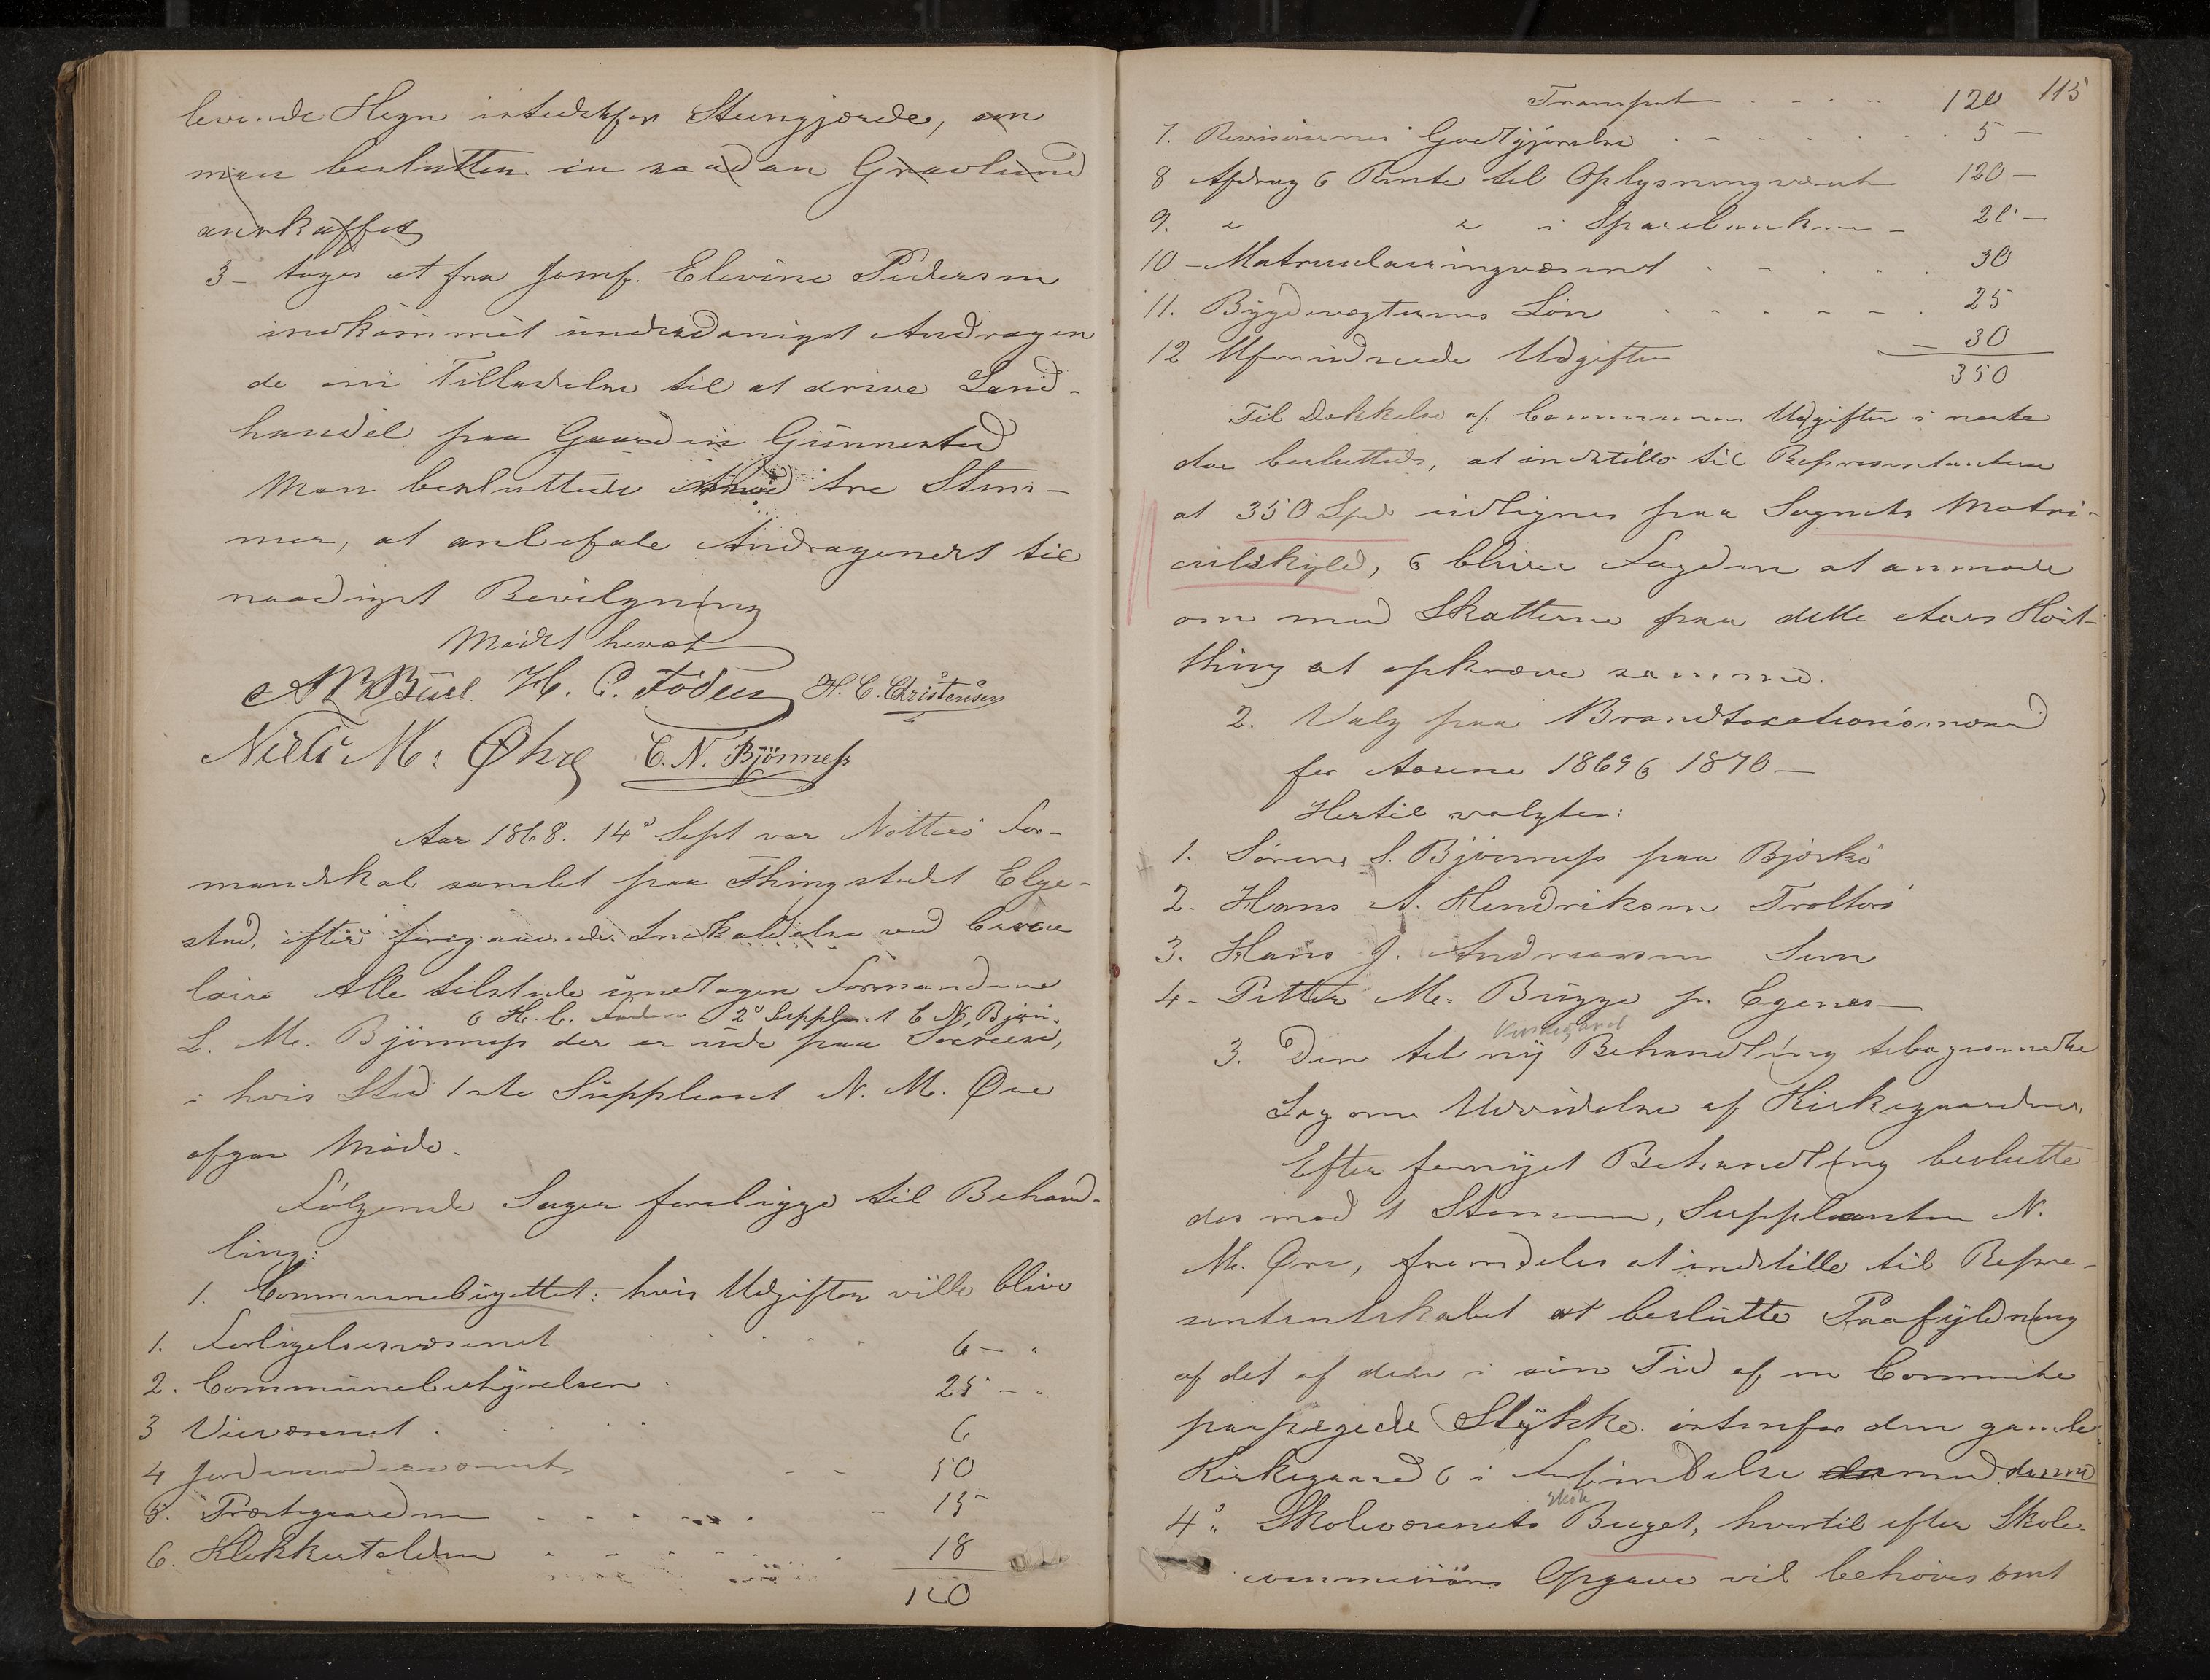 levende Hegn istedetfor Steengjærde, om
man beslutter en saadan Gravlund
anskaffet
3- toges et fra Jomf. Elevine Pedersen
indkommet underdanigst Andragen
de om Tilladelse til at drive Land-
handel paa Gaarden Gunnestad
Man besluttede imod tre Stem-
mer, at anbefale Andragendet til
naadigst Bevilgning
Mødet hævet
H. C. Foden H. C. Christensen
Niels M: Øhre C. N. Bjönness
Aar 1868. 14de Sept var Nøtterø For-
mandskab samlet paa Thingstedet Elge-
stad, efter foregaaende Indkaldelse ved Circu
laire Alle tilstede undtagen Formændene
& H. C. Foden & 2den Suppleant C N. Bjøn-
L. M. Bjönness der er ude paa Søreise,
i hvis Sted 1ste Suppleant N. M. Øre
afgav Møde.
Følgende Sager foreligge til Behand-
ling:
1. Communebugettet: hvis Udgifter ville blive
1. Forligelsesvæsenet 6 - "
2. Communebestyrelsen 25 - "
3 Veivæsenet 6
4 Jordemodervæsenet 50
5. Præstegaarden 15
6. Klokkertolden 18
120
115
Transport 120
7. Revisorernes Godtgjørelse 5 -
8 Afdrag & Rente til Oplysningsvæsenet 120 -
9. " " i Sparebanken - 20 -
10 - Matrouleringsvæsenet 30
11. Bygdevægternes Løn 25
12 Uforudseede Udgifter - 30
350
Til Dækkelse af Communens Udgifter i næste
Aar besluttedes, at indstille til Repræsentanterne
at 350 Spd udlignes paa Sognets Matri-
culskyld, & bliver Fogden at anmode
om med Skatterne paa dette Aars Høst-
thing at opkræve samme.
2. Valg paa Brandtaxationsmænd
for Aarene 1869 & 1870 -
Hertil valgtes:
1. Søren S. Bjønness paa Bjerkø
2. Hans A. Hendriksen Aroltsrø
3. Hans J. Andreassen Sem
4- Petter M. Bugge p. Egenes
Kirkegaard
3. Den til ny Behandling tilbagesendte
Sag om Udvidelse af Kirkegaarden.
Efter fornyet Behandling beslutte
des mod 1 Stemme, Suppleanten N.
M. Øre, fremdeles at indstille til Repræ-
sentantskabet at beslutte Paafyldning
af det af dem i sin Tid af en Committe
paapegede Stykke østenfor den gamle
Kirkegaard & i Forbindelse med denne
Skole
4de Skolevæsenets Buget, hvortil efter Skole-
commissionens Opgave vil behøves omt